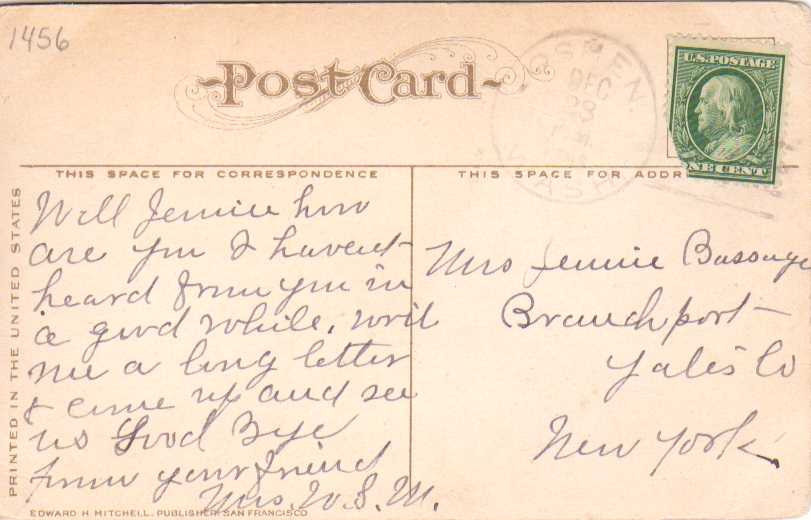 1456
Post Card
DEC
28
WASH.
U.S. POSTAGE
NE CENT
THIS SPACE FOR CORRESPONDENCE
THIS SPACE FOR ADDR
PRINTED IN THE UNITED STATES
Well Jennie how
are you I havent
heard from you in
a good while. writ
me a long letter
& come up and see
us Good Bye
from your friend
Mrs. W. S. M.
Mrs Jennie Bassage
Branchport
Yates Co
New York
EDWARD H. MITCHELL, PUBLISHER, SAN FRANCISCO